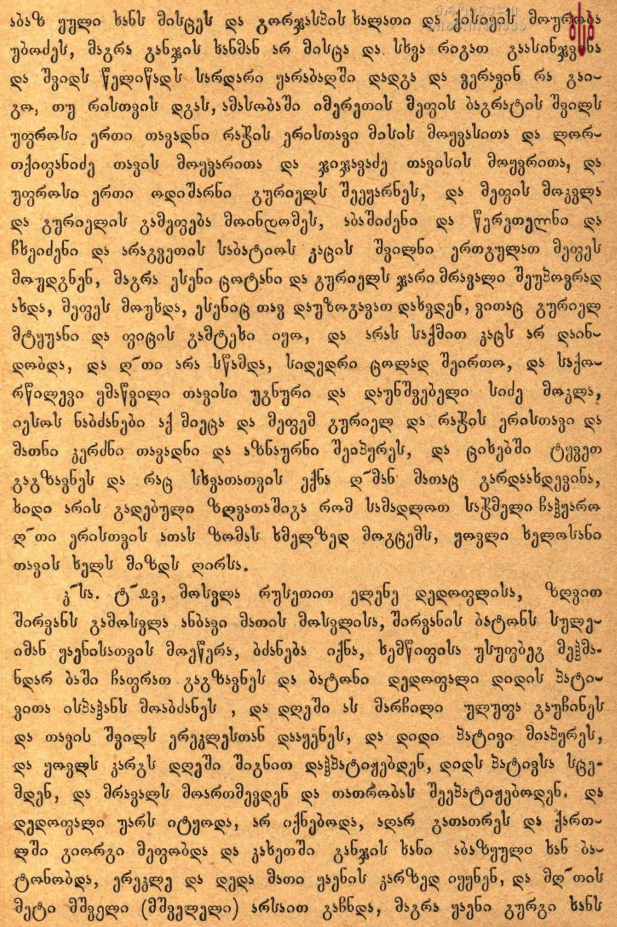 აბაზ ყული ხანს მისცეს და გორჯასპის ხალათი და ქისიყის მოურობა
უბოძეს, მაგრა განჯის ხანმან არ მისცა და სხვა რიგათ გაასინჯვინა
და შვიდს წელიწადს სარდარი ყარაბაღში დადგა და ვერავინ რა გაი-
გო, თუ რისთვის დგას, ამასობაში იმერეთის მეფის ბაგრატის შვილს
უფროსი ერთი თავადნი რაჭის ერისთავი მისის მოყვასითა და ლორ-
თქიფანიძე თავის მოყვარითა და ჯიჯავაძე თავისის მოყვრითა, და
უფროსი ერთი ოდიშარნი გურიელს შეეყარნეს, და მეფის მოკვლა
და გურიელის გამეფება მოინდომეს, აბაშიძენი და წერეთელნი და
ჩხეიძენი და არაგვეთის საბატიოს კაცის შვილნი ერთგულათ მეფეს
მოუდგნენ, მაგრა ესენი ცოტანი და გურიელს ჯარი მრავალი შეუპოვრად
ახდა, მეფეს მოუხდა, ესენიც თავ დაუზოგავათ დახვდენ, ვითაც გურიელ
მტყუანი და ფიცის გამტეხი იყო, და არას საქმით კაცს არ დაინ-
დობდა, და ღ˜თი არა სწამდა, სიდედრი ცოლად შეირთო, და საქო-
რწილევი ყმაწვილი თავისი უგნური და დაუნშვებელი სიძე მოკლა,
იესოს ნაბძანები აქ მიეცა და მეფემ გურიელ და რაჭის ერისთავი და
მათნი კერძნი თავადნი და აზნაურნი შეიპურეს, და ციხებში ტყვეთ
გაგზავნეს და რაც სხვათათვის ექნა ღ˜მან მათაც გარდაახდევინა,
ხიდი არის გადებული ზღვათაშიგა რომ სამადლოთ საჭმელი ჩაჰყარო
ღ˜თი ერისთვის ათას ზომას ხმელზედ მოგცემს, ყოვლი ხელოსანი
თავის ხელს მიზდს ღირსა.
კ˜სა. ტ˜ჲვ, მოსვლა რუსეთით ელენე დედოფლისა, ზღვით
შირვანს გამოსვლა ანბავი მათის მოსვლისა, შირვანის ბატონს სულე-
იმან ყაენისათვის მოეწერა, ბძანება იქნა, ხემწიფისა უსუფბეგ მეჰმა-
ნდარ ბაში ჩაფრათ გაგზავნეს და ბატონი დედოფალი დიდის პატი-
ვითა ისპაჰანს მოაბძანეს , და დღეში ას მარჩილი ულუფა გაუჩინეს
და თავის შვილს ერეკლესთან დააყენეს, და დიდი პატივი მიაპურეს,
და ყოვლს კარგს დღეში შიგნით დაჰპატიჟებდენ, დიდს პატივსა სცე-
მდენ, და მრავალს მოართმევდენ და თათრობას შეეპატიჟებოდენ. და
დედოფალი უარს იტყოდა, არ იქნებოდა, აღარ გათათრეს და ქართ-
ლში გიორგი მეფობდა და კახეთში განჯის ხანი აბაზყული ხან ბა-
ტონობდა, ერეკლე და დედა მათი ყაენის კარზედ იყვნენ, და მღ˜თის
მეტი მშველი (მშველელი) არსაით გაჩნდა, მაგრა ყაენი გურგი ხანს